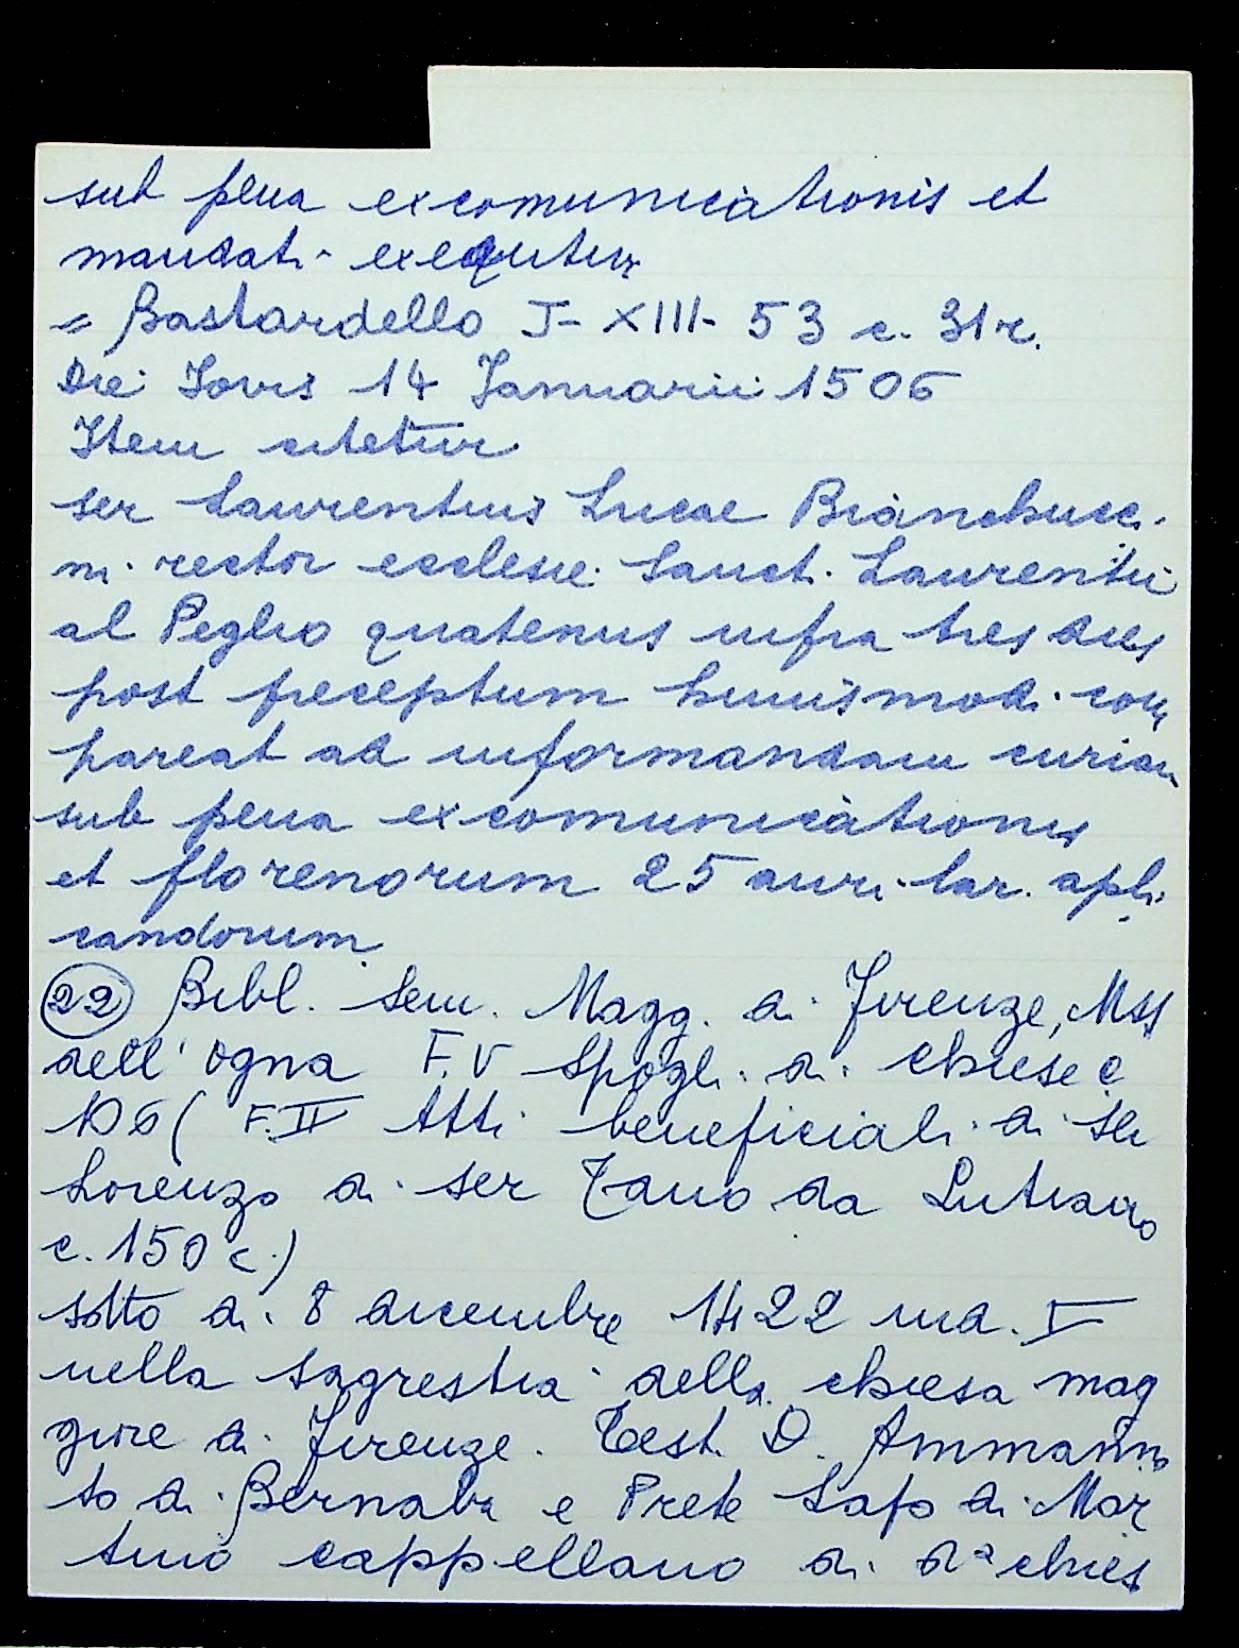 sub pena excomunicationis et
mandati exequtur
= Bastardello J- XIII- 53 c. 31r.
Die Jovis 14 Januarii 1506
Item citetur
ser Laurentius Lucae Bianchucci
ni rector ecclesie Sancti Laurentii
al Peglio quatenus infra tres dies
post preceptum huiusmodi com
pareat ad informandam curiam
sub pena excomunicationis
et florenorum 25 auri lar. apli
candorum
(22) Bibl. Sem. Magg. di Firenze, Mss
dell'Ogna F.V Spogli di chiese c
106 ( F. II Atti beneficiali di
Lorenzo di ser Tano da Lutiano
c. 150 c.)
sotto di 8 dicembre 1422 ind. I
nella sagrestia della chiesa mag
giore di Firenze. Test. D. Ammanna
to di Bernaba e Prete Lapo di Mar
tino cappellano di da chies